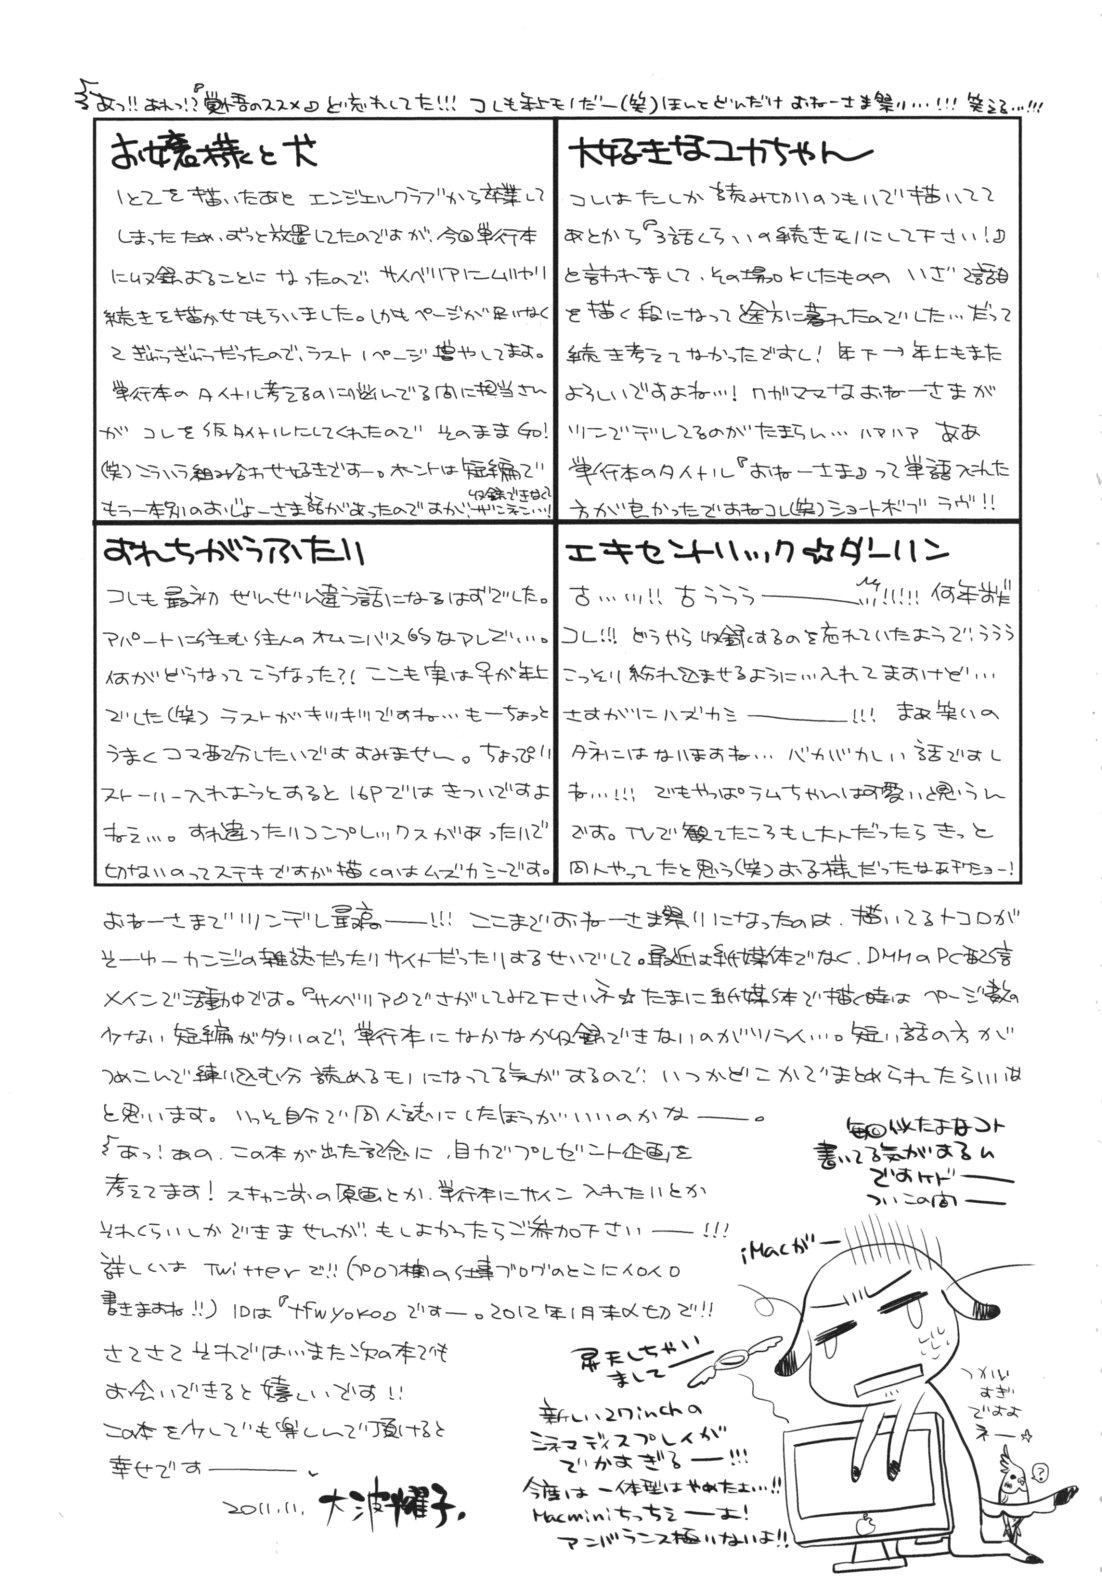 あっ!!あれっ!?『覚悟のススメ』ど忘れしてた!!! コレも年上モノだー(笑)ほんとどんだけ おねーさま祭り…!!! 笑える…!!!
お嬢様と犬
1とてを描いたあと エンジェルクラブから卒業して
しまったため、ずっと放置してたのですが、今回単行本
に収録することに なったので、サイベリアにムリヤリ
続きを描かせてもらいました。しかもページが足りなく
てぎゅうぎゅうだったので、ラスト1ページ増やしてます。
単行本のタイトル考えるのに悩んでる間に担当さん
が コレを仮タイトルにしてくれたので そのままGO!
(笑)こういう組み合わせ好きですー。ホントは短編で
もう一本別のおじょーさま話があったのですが、収録できなくてザンネン…!
大好きなユカちゃん
コレはたしか 読み切りのつもりで描いてて
あとから『3話くらいの続きモノにして下さい!』
と言われまして、その場OKしたものの いざ2話目
を描く段になって途方に暮れたのでした…だって
続き考えてなかったですし! 年下→年上もまた
よろしいですよね…! ワガママなおねーさまが
ツンでデレてるのがたまらん… ハァハァ ああ
単行本のタイトル『おねーさま』って単語入れた
方が良かったですねコレ(笑)ショートボブ ラヴ!!
すれちがうふたり
コレも最初 ぜんぜん違う話になるはずでした。
アパートに住む住人のオムニバス的なアレで…。
何がどうなってこうなった?! ここも実は♀が年上
でした(笑) ラストがキツキツですね… もーちょっと
うまくコマ配分したいですすみません。ちょっぴり
ストーリー入れようとすると16Pではきついですよ
ねぇ…。すれ違ったりコンプレックスがあったりで
切ないのってステキですが描くのはムズカシーです。
エキセントリック☆ダーリン
古…ッ!! 古ううう―――…!!!!! 何年前だ
コレ!!! どうやら収録するのを忘れていたようで、ううう
こっそり紛れ込ませるように…入れてますけど…
さすがにハズカシ―――!!! まあ笑いの
タネにはなりますね… バカバカしい話ですし
ね…!!! でもやっぱラムちゃんは可愛いと思うん
です。TVで観てたころもし大人だったらきっと
同人やってたと思う(笑)お子様だったなあ
おねーさまでツンデレ最高―――!!! ここまでおねーさま祭りになったのは、描いてるトコロが
そーゆーカンジの雑誌だったりサイトだったりするせいでして。最近は紙媒体でなく、DMMのPC配信
メインで活動中です。『サイベリア』でさがしてみて下さいネ☆たまに紙媒体で描く時は ページ数の
少ない短編が多いので、単行本になかなか収録できないのがツライ…。短い話の方が
つめこんで練り込む分 読めるモノになってる気がするので、いつかどこかでまとめられたらいいな
と思います。いっそ自分で同人誌にしたほうがいいのかな―――。
あっ!あの、この本が出た記念に、自力でプレゼント企画を
考えてます! スキャン前の原画とか、単行本にサイン入れたいとか
それくらいしかできませんが、もしよかったらご参加下さい――!!!
詳しくは Twitterで!!(プロフ欄の仕事ブログのとこにイロイロ
書きますね!!) IDは『tfwyoko』ですー。2012年1月末〆切で!!
さてさて それでは…また次の本でも
お会いできると嬉しいです!!
この本を少しでも楽しんで頂けると
幸せです―――。
2011.11. 大波耀子.
毎回似たよなコト
書いてる気がするん
ですケド――
ついこの間――
iMacが―
昇天しちゃい
まして
新しい27inchの
シネマディスプレイが
でかすぎるー!!!
今度は一体型はやめたよ…!!
Macminiちっちぇーよ!
アンバランス極りないよ!!
つかい
すぎ
ですよ
ネー☆
?